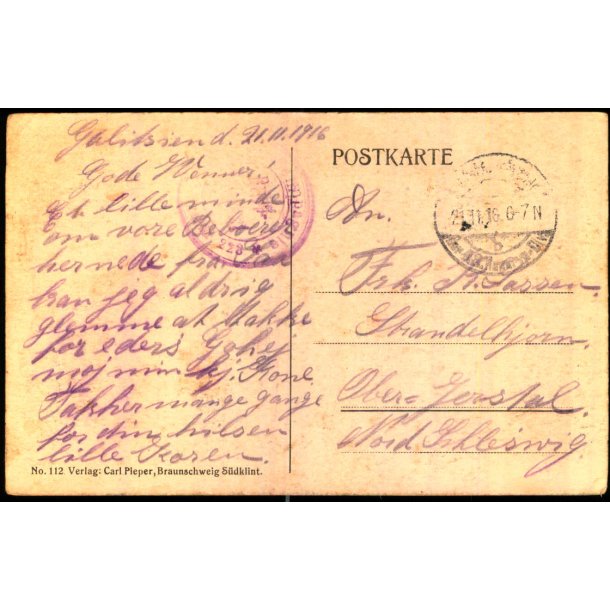 Galitsien d. 21.11.1916
Gode Venner!
Et lille minde
om vore Beboere
hernede fra
kan jeg aldrig
glemme at takke
for eders
min kj. Kone
Takker mange gange
for din hilsen
lille Karen.
No. 112 Verlag: Carl Pieper, Braunschweig Südklint.
POSTKARTE
21.11.16. 6-7 N
An.
Frk. St. Lassen.
Strandelhjorn.
Ober-Jerstal.
Nord Schleswig.